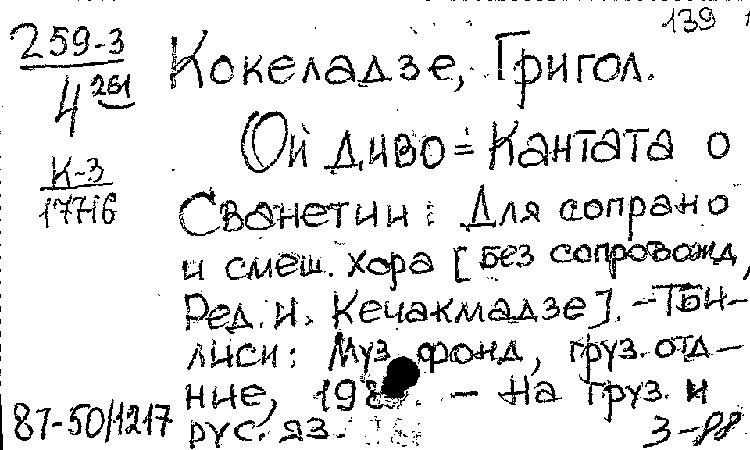 139
259-3
4 251
Кокеладзе, Григол.
Ой диво = Кантата о
К-3
17716
Сванетии : Для сопрано
и смеш. хора [без сопровожд,
Ред. И. Кечакмадзе]. - Тби-
лиси : Муз фонд, груз. отд-
ние, 198 . - На груз. и
87-50/1217
рус. яз.
3-88